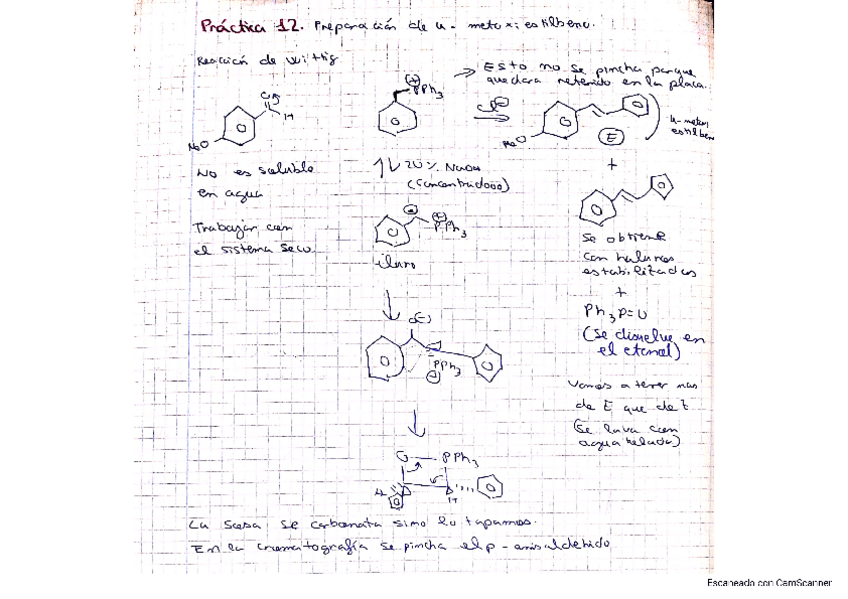 Práctica 12. Preparación de 4-metoxiestilbeno.
Reacción de Wittig
Esto no se pincha porque
quedara retenido en la placa.
PPh₃
H
MeO
Cl
MeO
E
4-metoxi
estilben
No es soluble
en agua
20% NaOH
(Concentrado)
+
Trabajar con
el sistema seco.
PPh₃
iluro
Se obtiene
con haluros
estabilizados
+
Ph₃P=O
(se disuelve en
el etanol)
PPh₃
Vamos a tener mas
de E que de Z
(se lava con
agua helada)
O
PPh₃
H
H
La sosa se carbonata si no lo tapamos.
En la cromatografía se pincha el p-anisaldehido
Escaneado con CamScanner